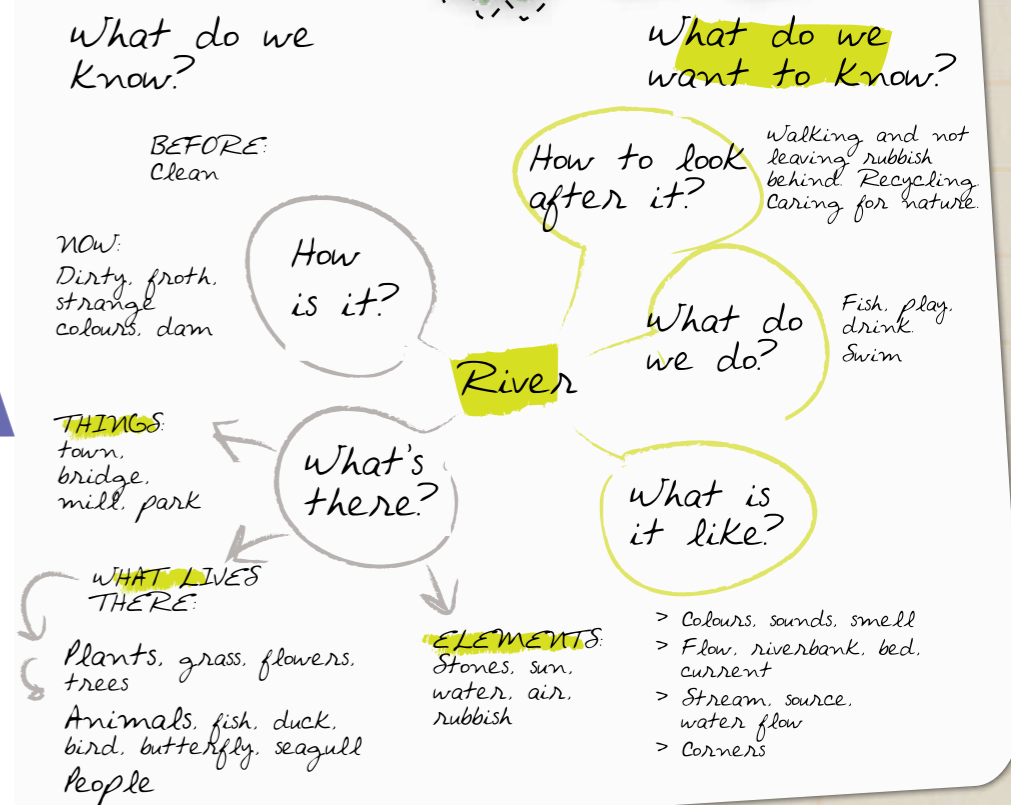 What do we
know?
BEFORE:
Clean
NOW:
Dirty, froth,
strange
colours, dam
How
is it?
THINGS:
town,
bridge,
mill, park
What's
there?
WHAT LIVES
THERE:
Plants, grass, flowers,
trees
Animals, fish, duck,
bird, butterfly, seagull
People
ELEMENTS:
Stones, sun,
water, air,
rubbish
River
What do we
want to know?
How to look
after it?
Walking and not
leaving rubbish
behind. Recycling.
Caring for nature.
What do
we do?
Fish, play,
drink.
Swim
What is
it like?
> Colours, sounds, smell
> Flow, riverbank, bed,
current
> Stream, source,
water flow
> Corners